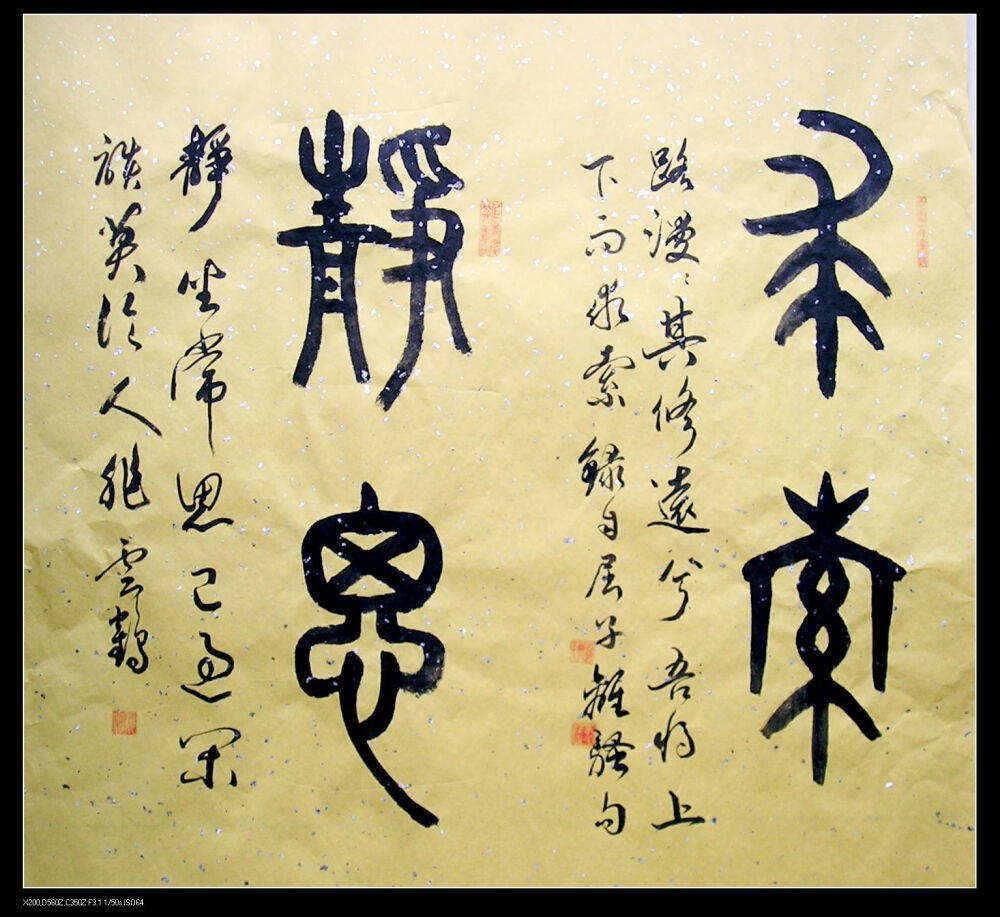 求索
路漫々其修遠兮吾将上
下而求索錄自屈子離騷句
靜思
靜坐常思己過閑
談莫論人非雲鶴
X200,D560Z,C350Z F3.1 1/50s ISO64